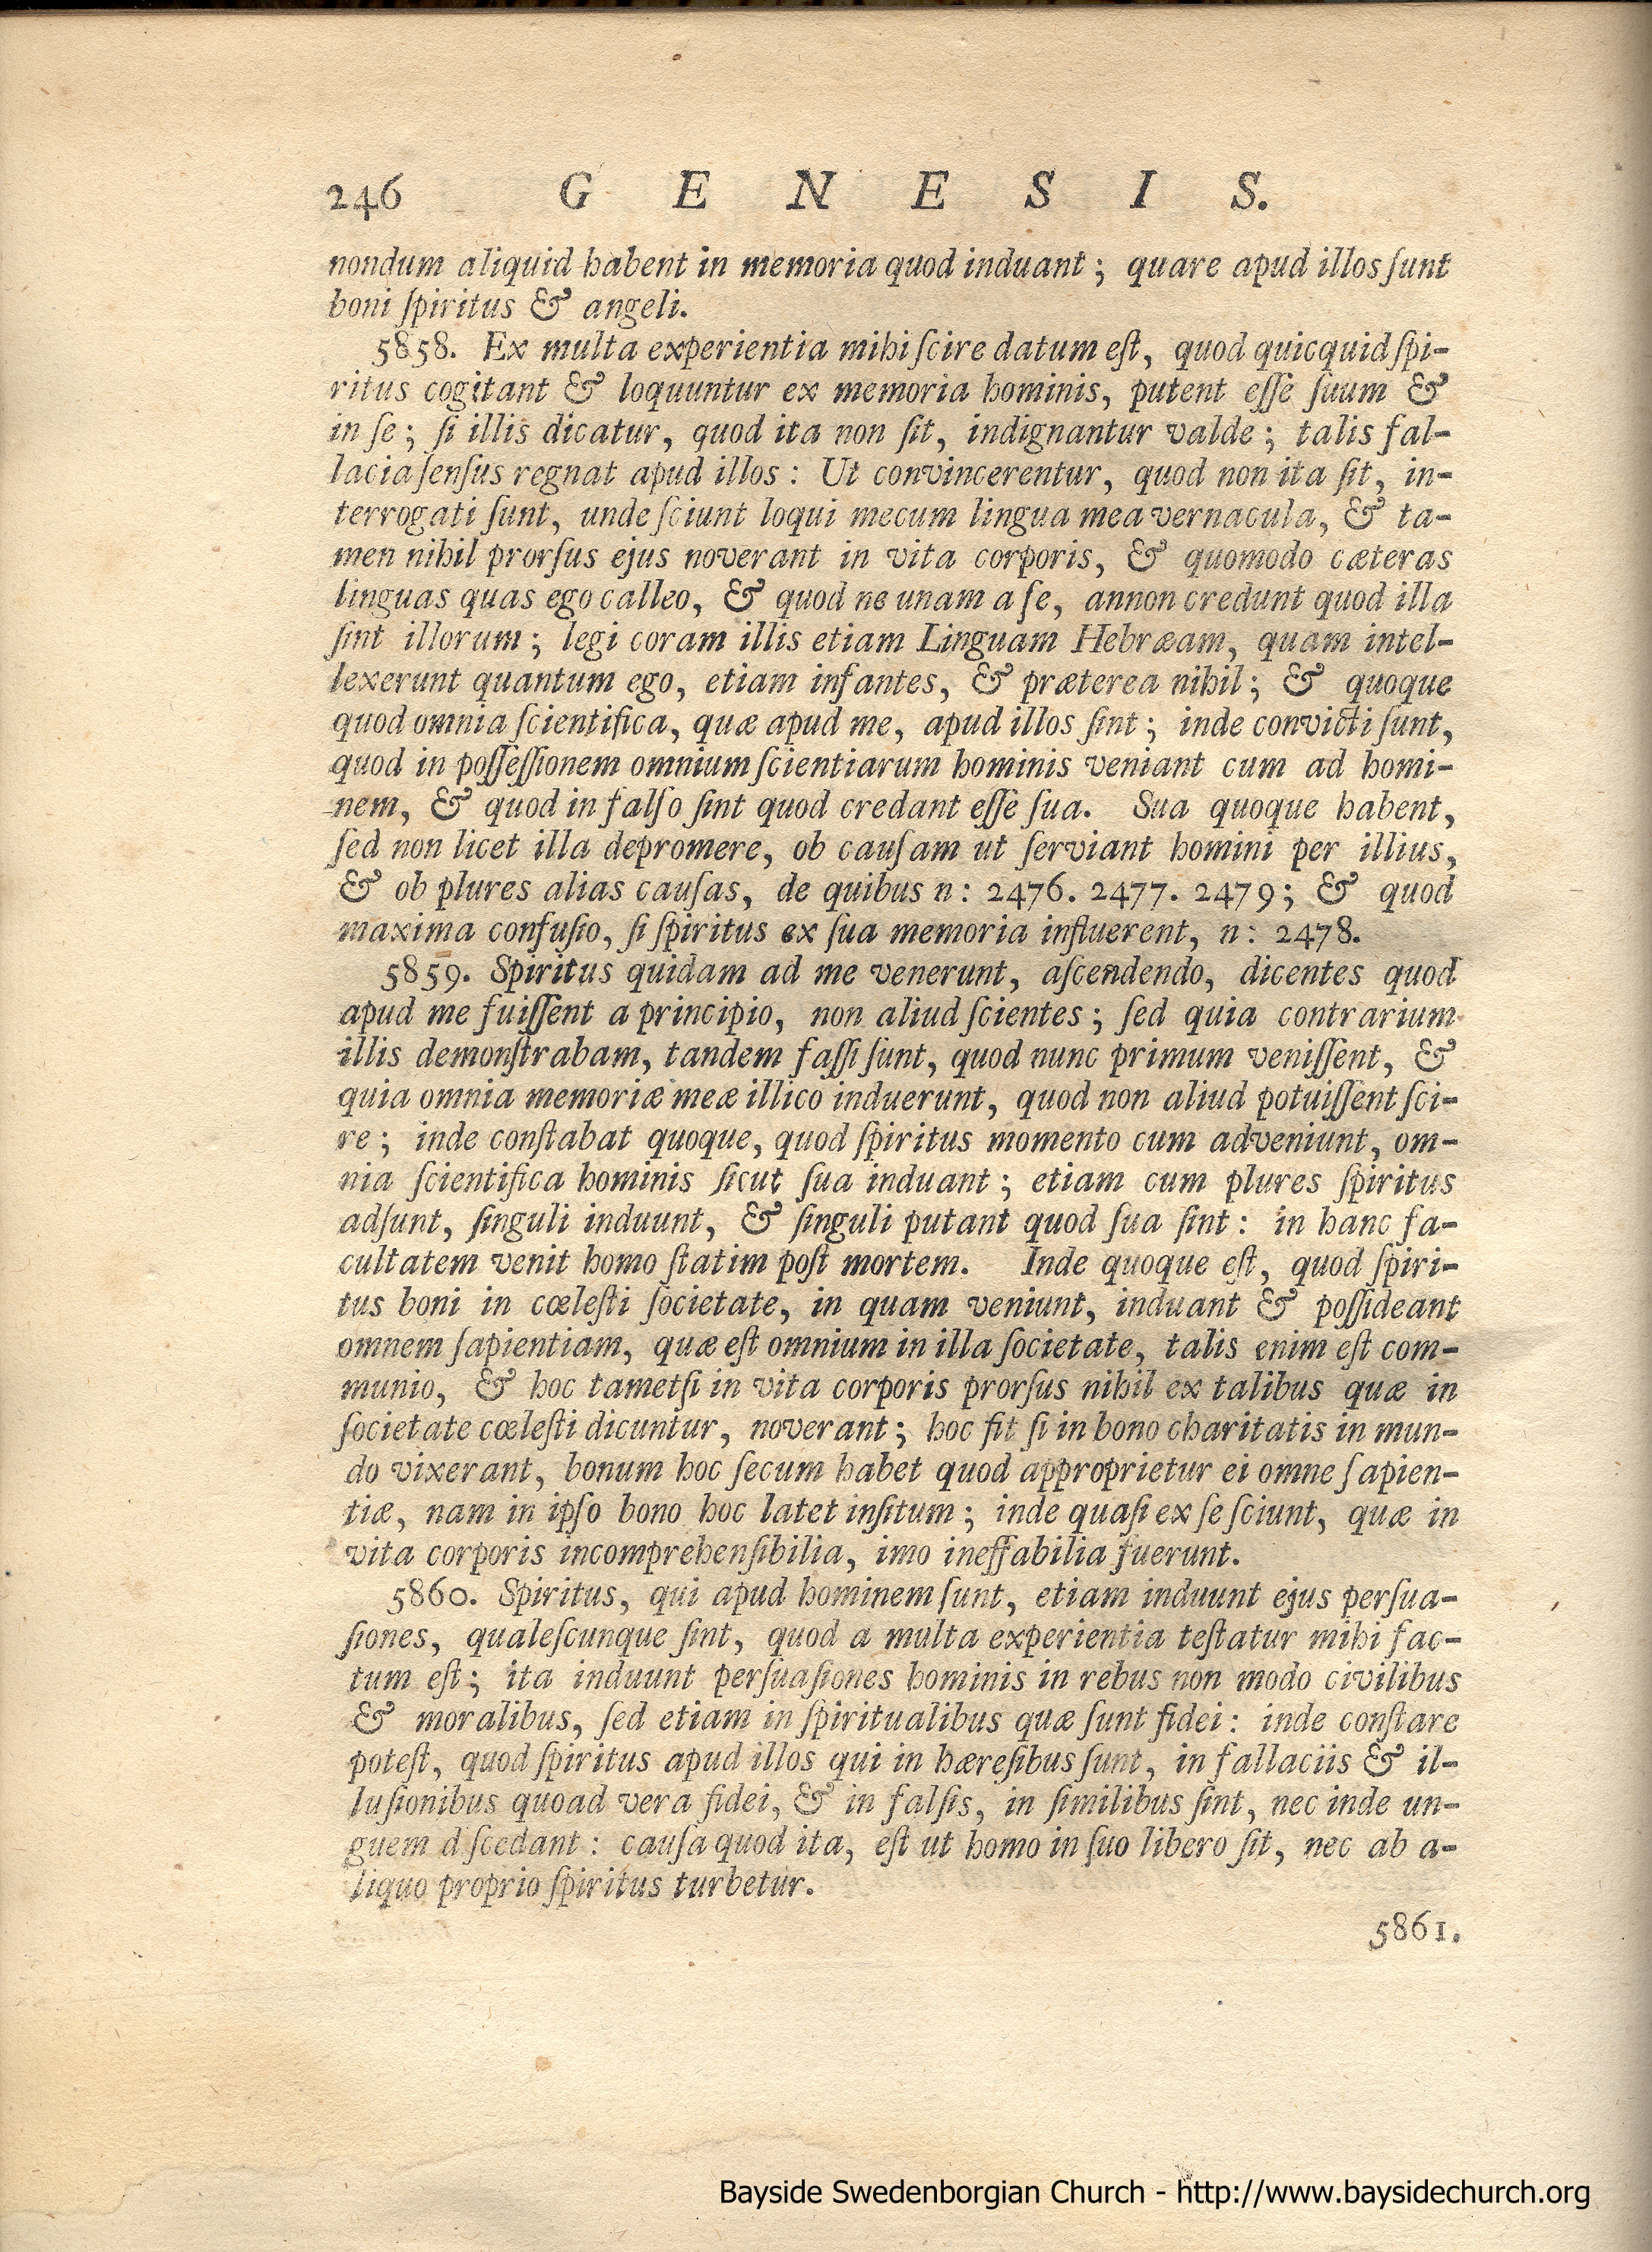 246 G E N E S I S.
nondum aliquid habent in memoria quod induant; quare apud illos ſunt
boni ſpiritus & angeli.
5858. Ex multa experientia mihi ſcire datum eſt, quod quicquid ſpi-
ritus cogitant & loquuntur ex memoria hominis, putent eſſe ſuum &
in ſe; ſi illis dicatur, quod ita non ſit, indignantur valde; talis fal-
lacia ſenſus regnat apud illos: Ut convincerentur, quod non ita ſit, in-
terrogati ſunt, unde ſciunt loqui mecum lingua mea vernacula, & ta-
men nihil prorſus ejus noverant in vita corporis, & quomodo cæteras
linguas quas ego calleo, & quod ne unam a ſe, annon credunt quod illa
ſint illorum; legi coram illis etiam Linguam Hebræam, quam intel-
lexerunt quantum ego, etiam infantes, & præterea nihil; & quoque
quod omnia ſcientifica, quæ apud me, apud illos ſint; inde convicti ſunt,
quod in poſſeſſionem omnium ſcientiarum hominis veniant cum ad homi-
nem, & quod in falſo ſint quod credant eſſe ſua. Sua quoque habent,
ſed non licet illa depromere, ob cauſam ut ſerviant homini per illius,
& ob plures alias cauſas, de quibus n: 2476. 2477. 2479; & quod
maxima confuſio, ſi ſpiritus ex ſua memoria influerent, n: 2478.
5859. Spiritus quidam ad me venerunt, aſcendendo, dicentes quod
apud me fuiſſent a principio, non aliud ſcientes; ſed quia contrarium
illis demonſtrabam, tandem faſſi ſunt, quod nunc primum veniſſent, &
quia omnia memoriæ meæ illico induerunt, quod non aliud potuiſſent ſci-
re; inde conſtabat quoque, quod ſpiritus momento cum adveniunt, om-
nia ſcientifica hominis ſicut ſua induant; etiam cum plures ſpiritus
adſunt, ſinguli induunt, & ſinguli putant quod ſua ſint: in hanc fa-
cultatem venit homo ſtatim poſt mortem. Inde quoque eſt, quod ſpiri-
tus boni in cœleſti ſocietate, in quam veniunt, induant & poſſideant
omnem ſapientiam, quæ eſt omnium in illa ſocietate, talis enim eſt com-
munio, & hoc tametſi in vita corporis prorſus nihil ex talibus quæ in
ſocietate cœleſti dicuntur, noverant; hoc fit ſi in bono charitatis in mun-
do vixerant, bonum hoc ſecum habet quod approprietur ei omne ſapien-
tiæ, nam in ipſo bono hoc latet inſitum; inde quaſi ex ſe ſciunt, quæ in
vita corporis incomprehenſibilia, imo ineffabilia fuerunt.
5860. Spiritus, qui apud hominem ſunt, etiam induunt ejus perſua-
ſiones, qualeſcunque ſint, quod a multa experientia teſtatur mihi fac-
tum eſt; ita induunt perſuaſiones hominis in rebus non modo civilibus
& moralibus, ſed etiam in ſpiritualibus quæ ſunt fidei: inde conſtare
poteſt, quod ſpiritus apud illos qui in hæreſibus ſunt, in fallaciis & il-
luſionibus quoad vera fidei, & in falſis, in ſimilibus ſint, nec inde un-
guem d ſcedant: cauſa quod ita, eſt ut homo in ſuo libero ſit, nec ab a-
liquo proprio ſpiritus turbetur.
5861.
Bayside Swedenborgian Church - http://www.baysidechurch.org